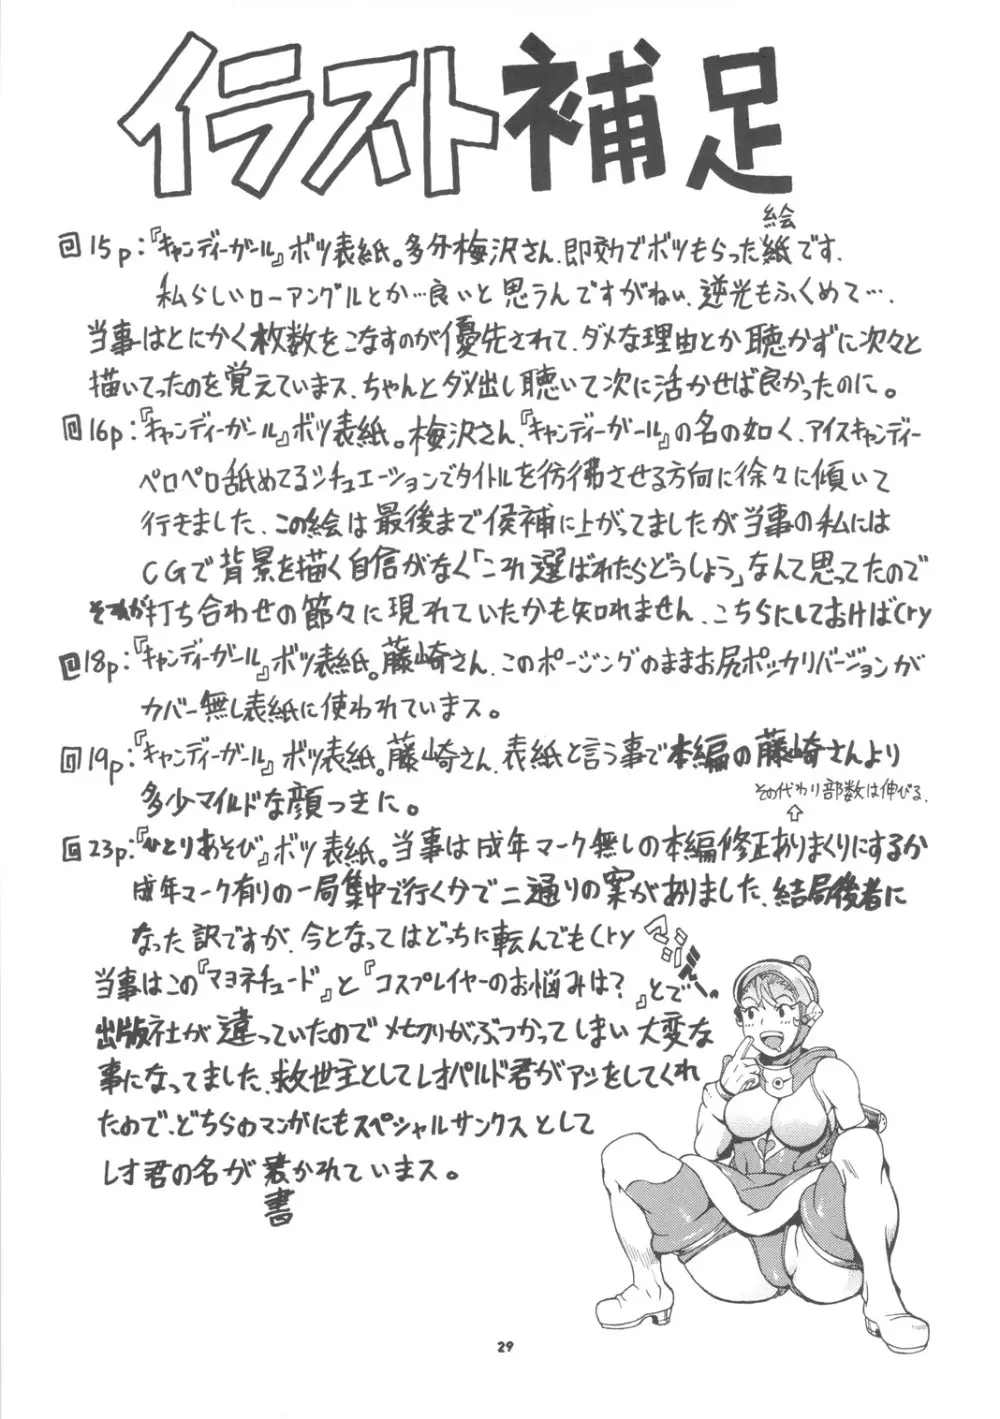 イラスト補足
15p:『キャンディーガール』ボツ表紙。多分梅沢さん、即効でボツもらった紙です、
絵
私らしいローアングルとか…良いと思うんですがねぃ、逆光もふくめて…、
当事はとにかく枚数をこなすのが優先されて、ダメな理由とか聴かずに次々と
描いてったのを覚えていまス、ちゃんとダメ出し聴いて次に活かせば良かったのに。
16p:『キャンディーガール』ボツ表紙。梅沢さん、『キャンディーガール』の名の如く、アイスキャンディー
ペロペロ舐めてるシチュエーションでタイトルを彷彿させる方向に徐々に傾いて
行きました、この絵は最後まで候補に上がってましたが当事の私には
CGで背景を描く自信がなく「これ選ばれたらどうしよう」なんて思ってたので
それが打ち合わせの節々に現れていたかも知れません、こちらにしておけば(ry
18p:『キャンディーガール』ボツ表紙。藤崎さん、このポージングのままお尻ポッカリバージョンが
カバー無し表紙に使われていまス。
19p:『キャンディーガール』ボツ表紙。藤崎さん、表紙と言う事で本編の藤崎さんより
多少マイルドな顔つきに。
その代わり部数は伸びる、
⇧
23p:『ひとりあそび』ボツ表紙。当事は成年マーク無しの本編修正ありまくりにするか
成年マーク有りの一局集中で行く分で二通りの案がありました、結局後者に
なった訳ですが、今となってはどっちに転んでも(ry
マジで〜
当事はこの『マヨネチュード』と『コスプレイヤーのお悩みは?』とで
出版社が違っていたのでメセクリがぶつかってしまい大変な
事になってました、救世主としてレオパルド君がアシをしてくれ
たので、どちらのマンガにもスペシャルサンクスとして
レオ君の名が書かれていまス。
書
29